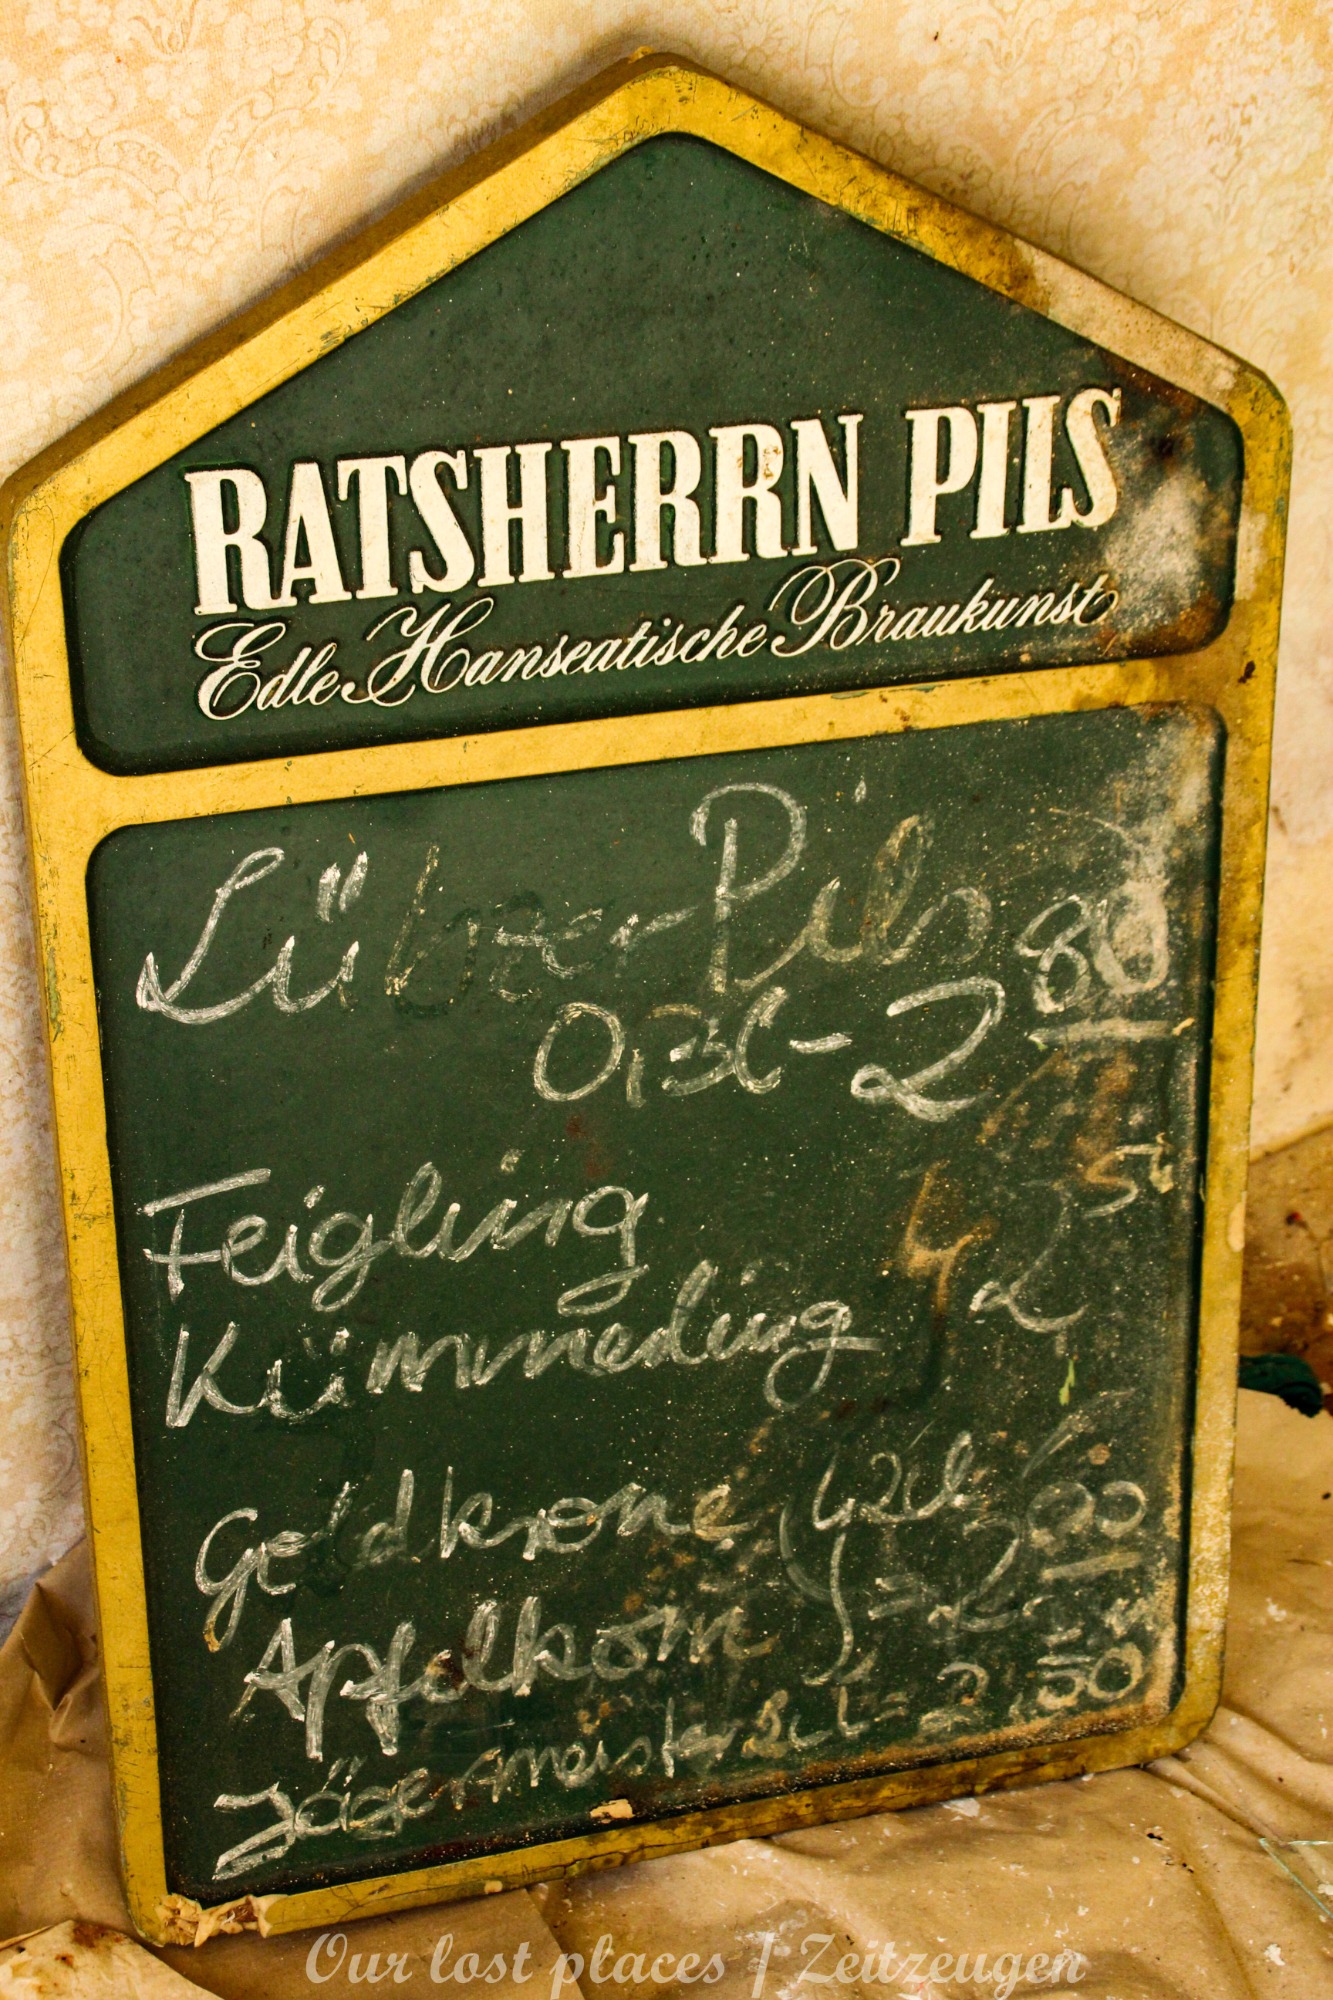 RATSHERRN PILS
Edle Hanseatische Braukunst
Lübzer Pils
0,3l - 2 80
Feigling
Kümmerling 2 50
Goldkrone 2cl
Apfelkorn = 2 00
Jägermeister 2cl = 2,50
Our lost places | Zeitzeugen